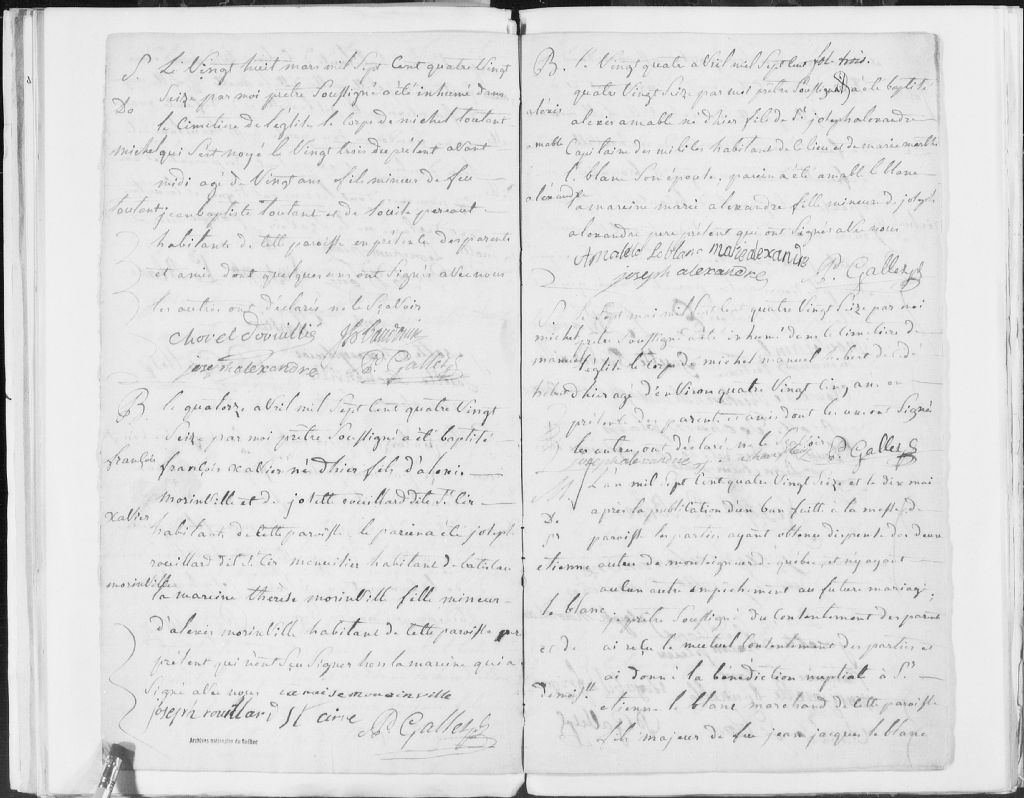 S. Le Vingt huit mars mil Sept Cent quatre Vingt
Seize par moi prêtre Soussigné a été inhumé dans
Do
le Cimetiere de l'église le Corps de michel toutant
michel qui s'est noyé le Vingt trois du présent avant
midi agé de Vingt ans fils mineur de feu
toutant jean baptiste toutant et de
habitants de cette paroisse en présence des parents
et amis dont quelques uns ont Signés avec nous
les autres ont déclarés ne le Sçavoir
Chorel Dorvilliés
joseph alexandre P. Gallet ptre
B. le quatorze avril mil Sept Cent quatre Vingt
Seize par moi prêtre Soussigné a été baptisé
françois françois xavier né d'hier fils d'alexis
morinville et de josette rouillard dite St. Cir
xavier
habitants de cette paroisse, le parein a été joseph
rouillard dit St. Cir menuisier habitant de batiscan
morinville
la mareine thérèse morinville fille mineur
d'alexis morinville habitant de cette paroisse per
présent qui n'ont Sçu Signer hors la mareine qui a
Signé avec nous
joseph rouillard St cire P. Gallet ptre
Archives nationales du Québec
B. le Vingt quate avril mil Sept Cent fol. trois.
quatre Vingt Seize par moi prêtre Soussigné a été baptisé
alexis
alexis amable né d'hier fils de Sr. joseph alexandre
amable
Capitaine des milices habitant de ce lieu et de marie
l. blanc Son épouse, parein a été amable l. blanc
alexandre
la mareine marie alexandre fille mineur de joseph
alexandre pere présent qui ont Signés avec nous
Amable Leblanc marie alexandre
joseph alexandre P. Gallet ptre
S. le Sept mai mil Sept Cent quatre Vingt Seize par moi
michel prêtre Soussigné a été inhumé dans le Cimetiere de
manuel l'église le Corps de michel manuel hebert décédé
hebert d'hier agé d'environ quatre Vingt Cinq ans en
présence des parents et amis dont les uns ont Signé
les autres ont déclaré ne le Sçavoir
joseph alexandre P. Gallet ptre
M. L'an mil Sept Cent quatre Vingt Seize et le dix mai
De
après la publication d'un ban faitte à la messe de
Sr
paroisse les parties ayant obtenu dispense des deux
etienne autres de monseigneur de québec et n'y ayant
aucun autre empêchement au future mariage,
le blanc je prêtre Soussigné du Consentement des parents
et de ai reçu le mutuel Consentement des parties et
ai donné la bénédiction nuptial à Sr.
demoislle
etienne le blanc marchand de cette paroisse
fils majeur de feu jean jacques le blanc